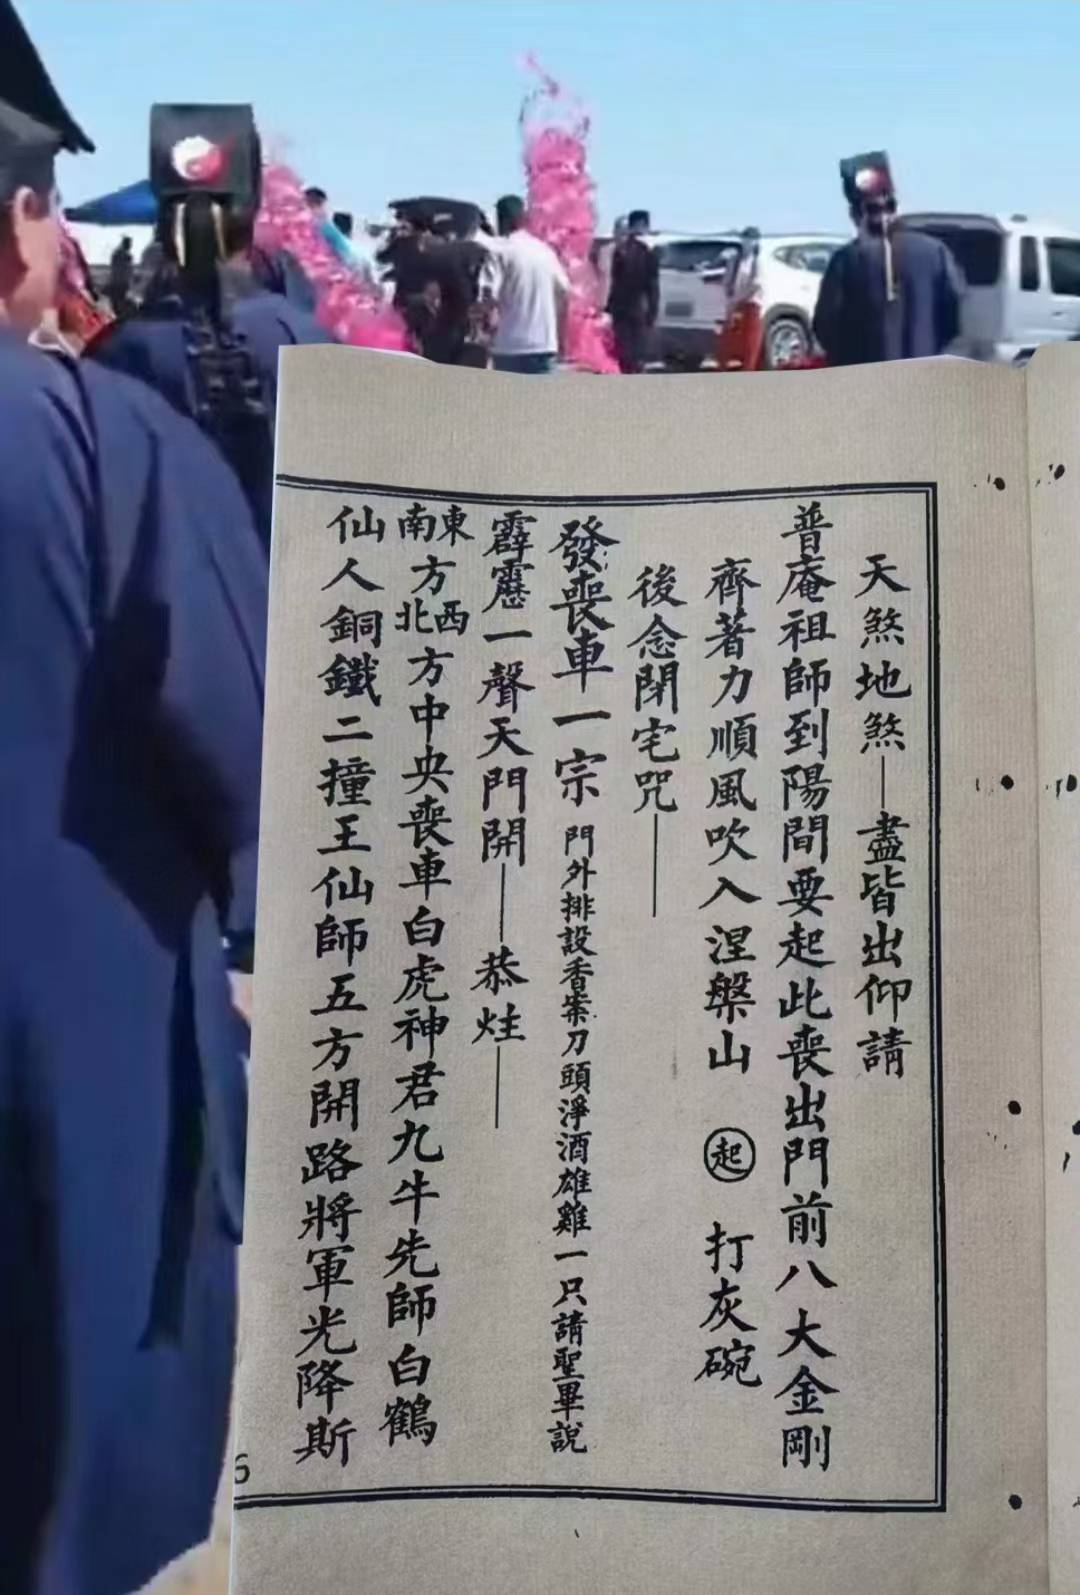 天煞地煞—盡皆出仰請
普庵祖師到陽間要起此喪出門前八大金剛
齊著力順風吹入涅槃山 起 打灰碗
後念閉宅咒—
發喪車一宗 門外排設香案刀頭淨酒雄雞一只請聖畢說
霹靂一聲天門開—恭炷—
東南方西北方中央喪車白虎神君九牛先師白鶴
仙人銅鐵二撞王仙師五方開路將軍光降斯
6